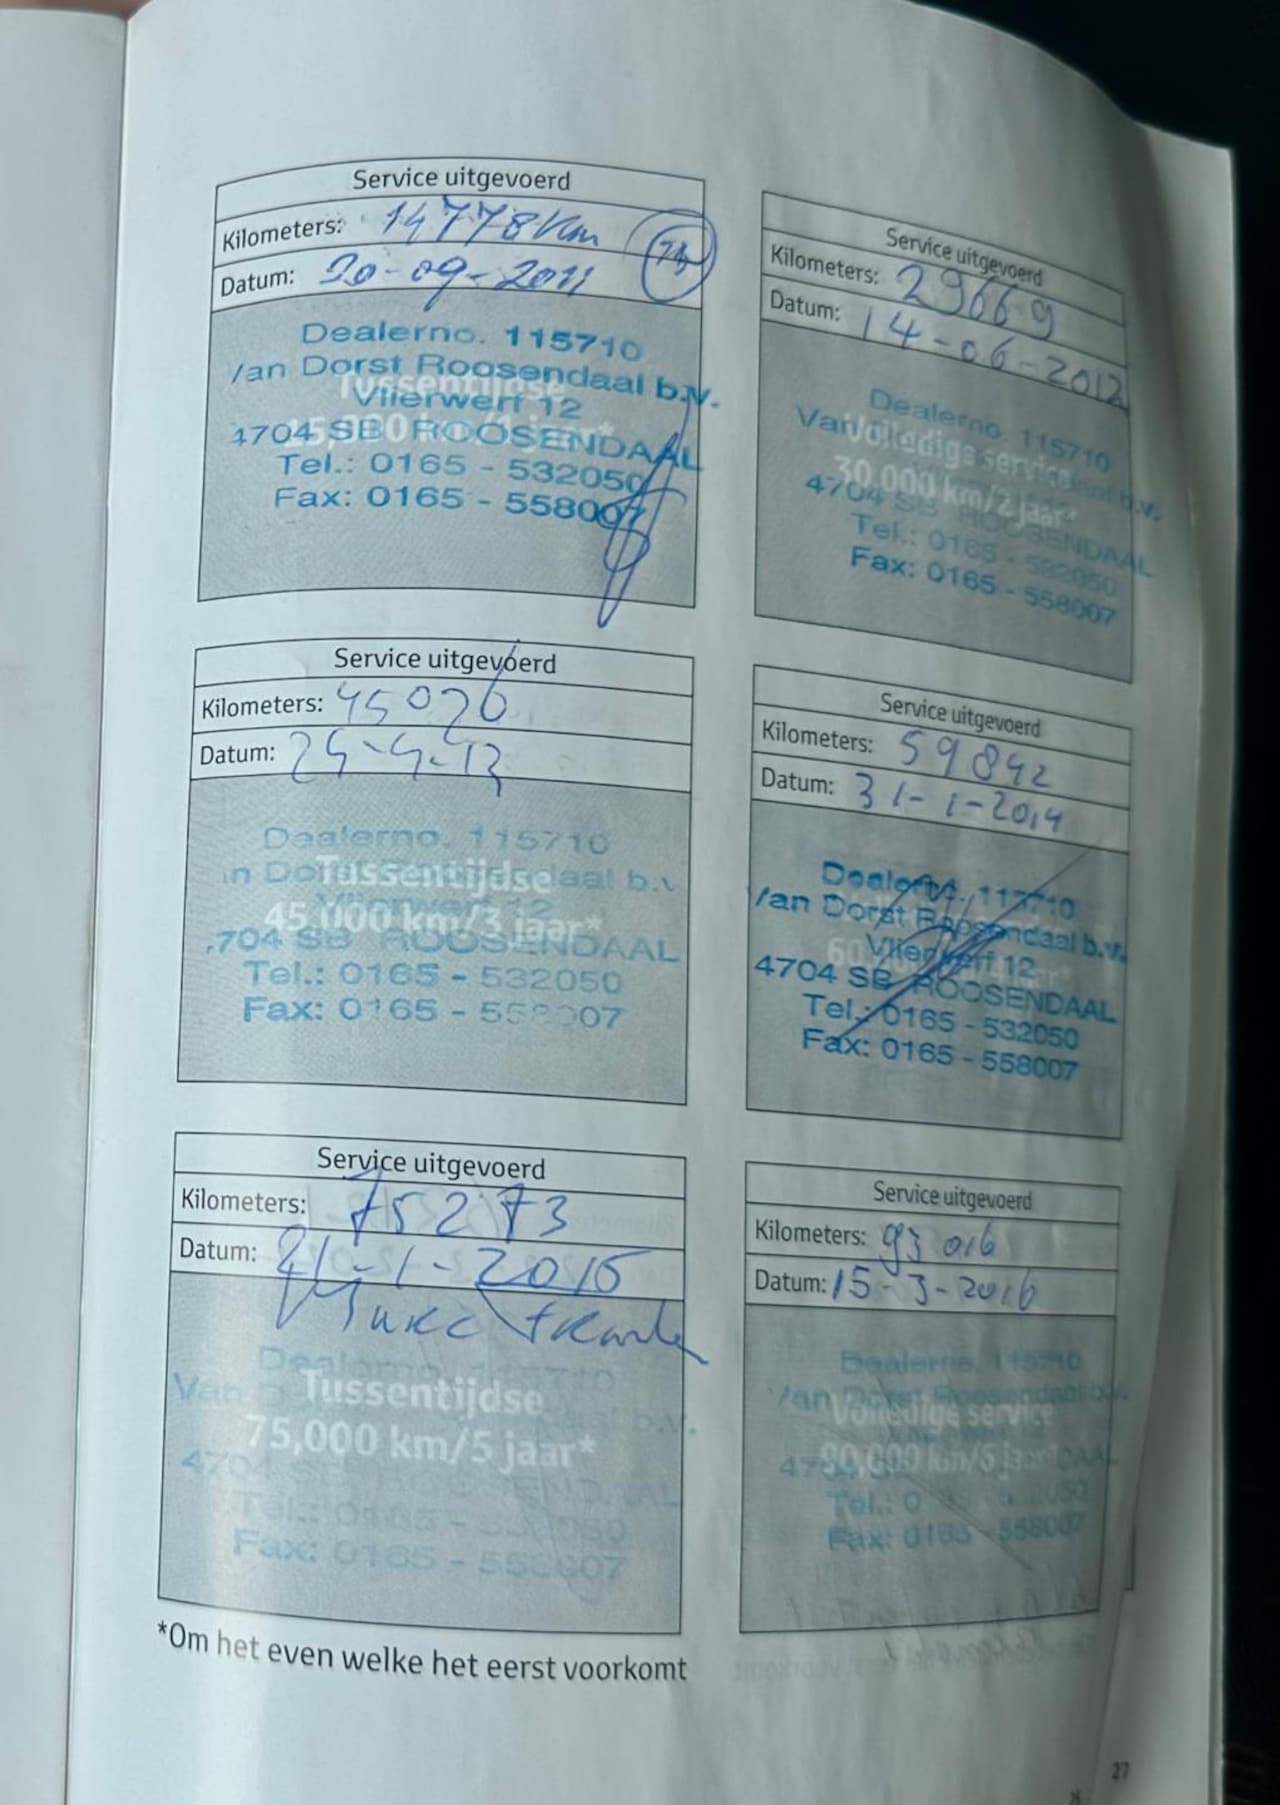 Service uitgevoerd
Kilometers: 14778 km
Datum: 20-09-2011
Dealerno. 115710
Van Dorst Roosendaal b.v.
Tussentijdse
Vlierwerf 12
15,000 km/1 jaar*
4704 SB ROOSENDAAL
Tel.: 0165 - 532050
Fax: 0165 - 558007
Service uitgevoerd
Kilometers: 29669
Datum: 14-06-2012
Dealerno. 115710
Van
Volledige service
30.000 km/2 jaar*
4704 SB ROOSENDAAL
Tel.: 0165 - 532050
Fax: 0165 - 558007
Service uitgevoerd
Kilometers: 45076
Datum: 25-4-13
Dealerno. 115710
Tussentijdse
45,000 km/3 jaar*
4704 SB ROOSENDAAL
Tel.: 0165 - 532050
Fax: 0165 - 558007
Service uitgevoerd
Kilometers: 59842
Datum: 31-1-2014
Dealerno. 115710
Van Dorst Roosendaal b.v.
Vlierwerf 12
4704 SB ROOSENDAAL
Tel.: 0165 - 532050
Fax: 0165 - 558007
Service uitgevoerd
Kilometers: 75273
Datum: 21-1-2015
Dealerno. 115710
Tussentijdse
75,000 km/5 jaar*
4704 SB ROOSENDAAL
Tel.: 0165 - 532050
Fax: 0165 - 558007
Service uitgevoerd
Kilometers: 93016
Datum: 15-3-2016
Dealerno. 115710
Van Dorst Roosendaal b.v.
Volledige service
90,000 km/6 jaar*
Fax: 0165 - 558007
*Om het even welke het eerst voorkomt
27